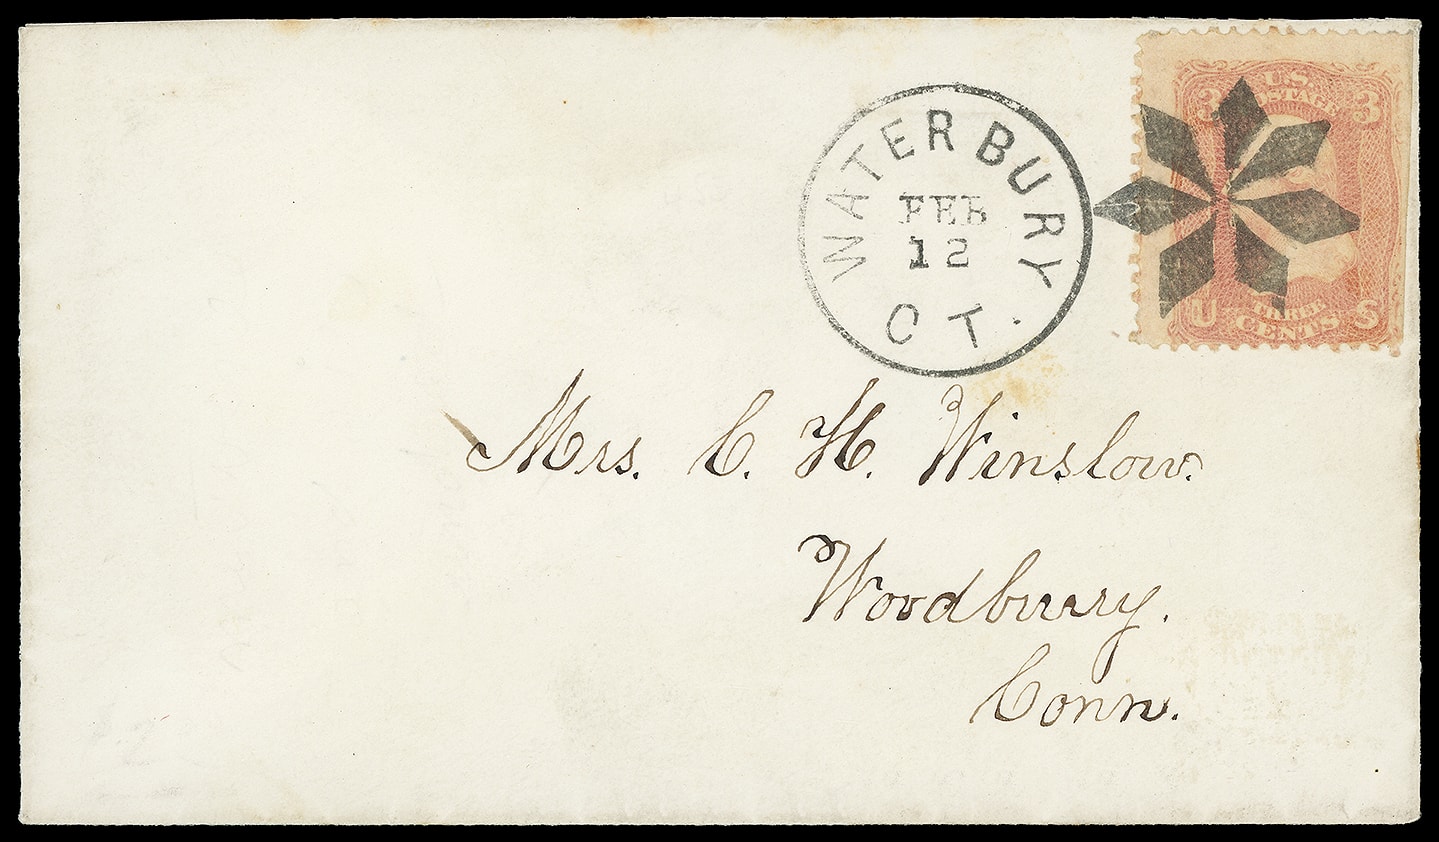 WATERBURY
FEB
12
CT.
U.S.
POSTAGE
3 3
U THREE S
CENTS
Mrs. C. H. Winslow.
Woodbury.
Conn.